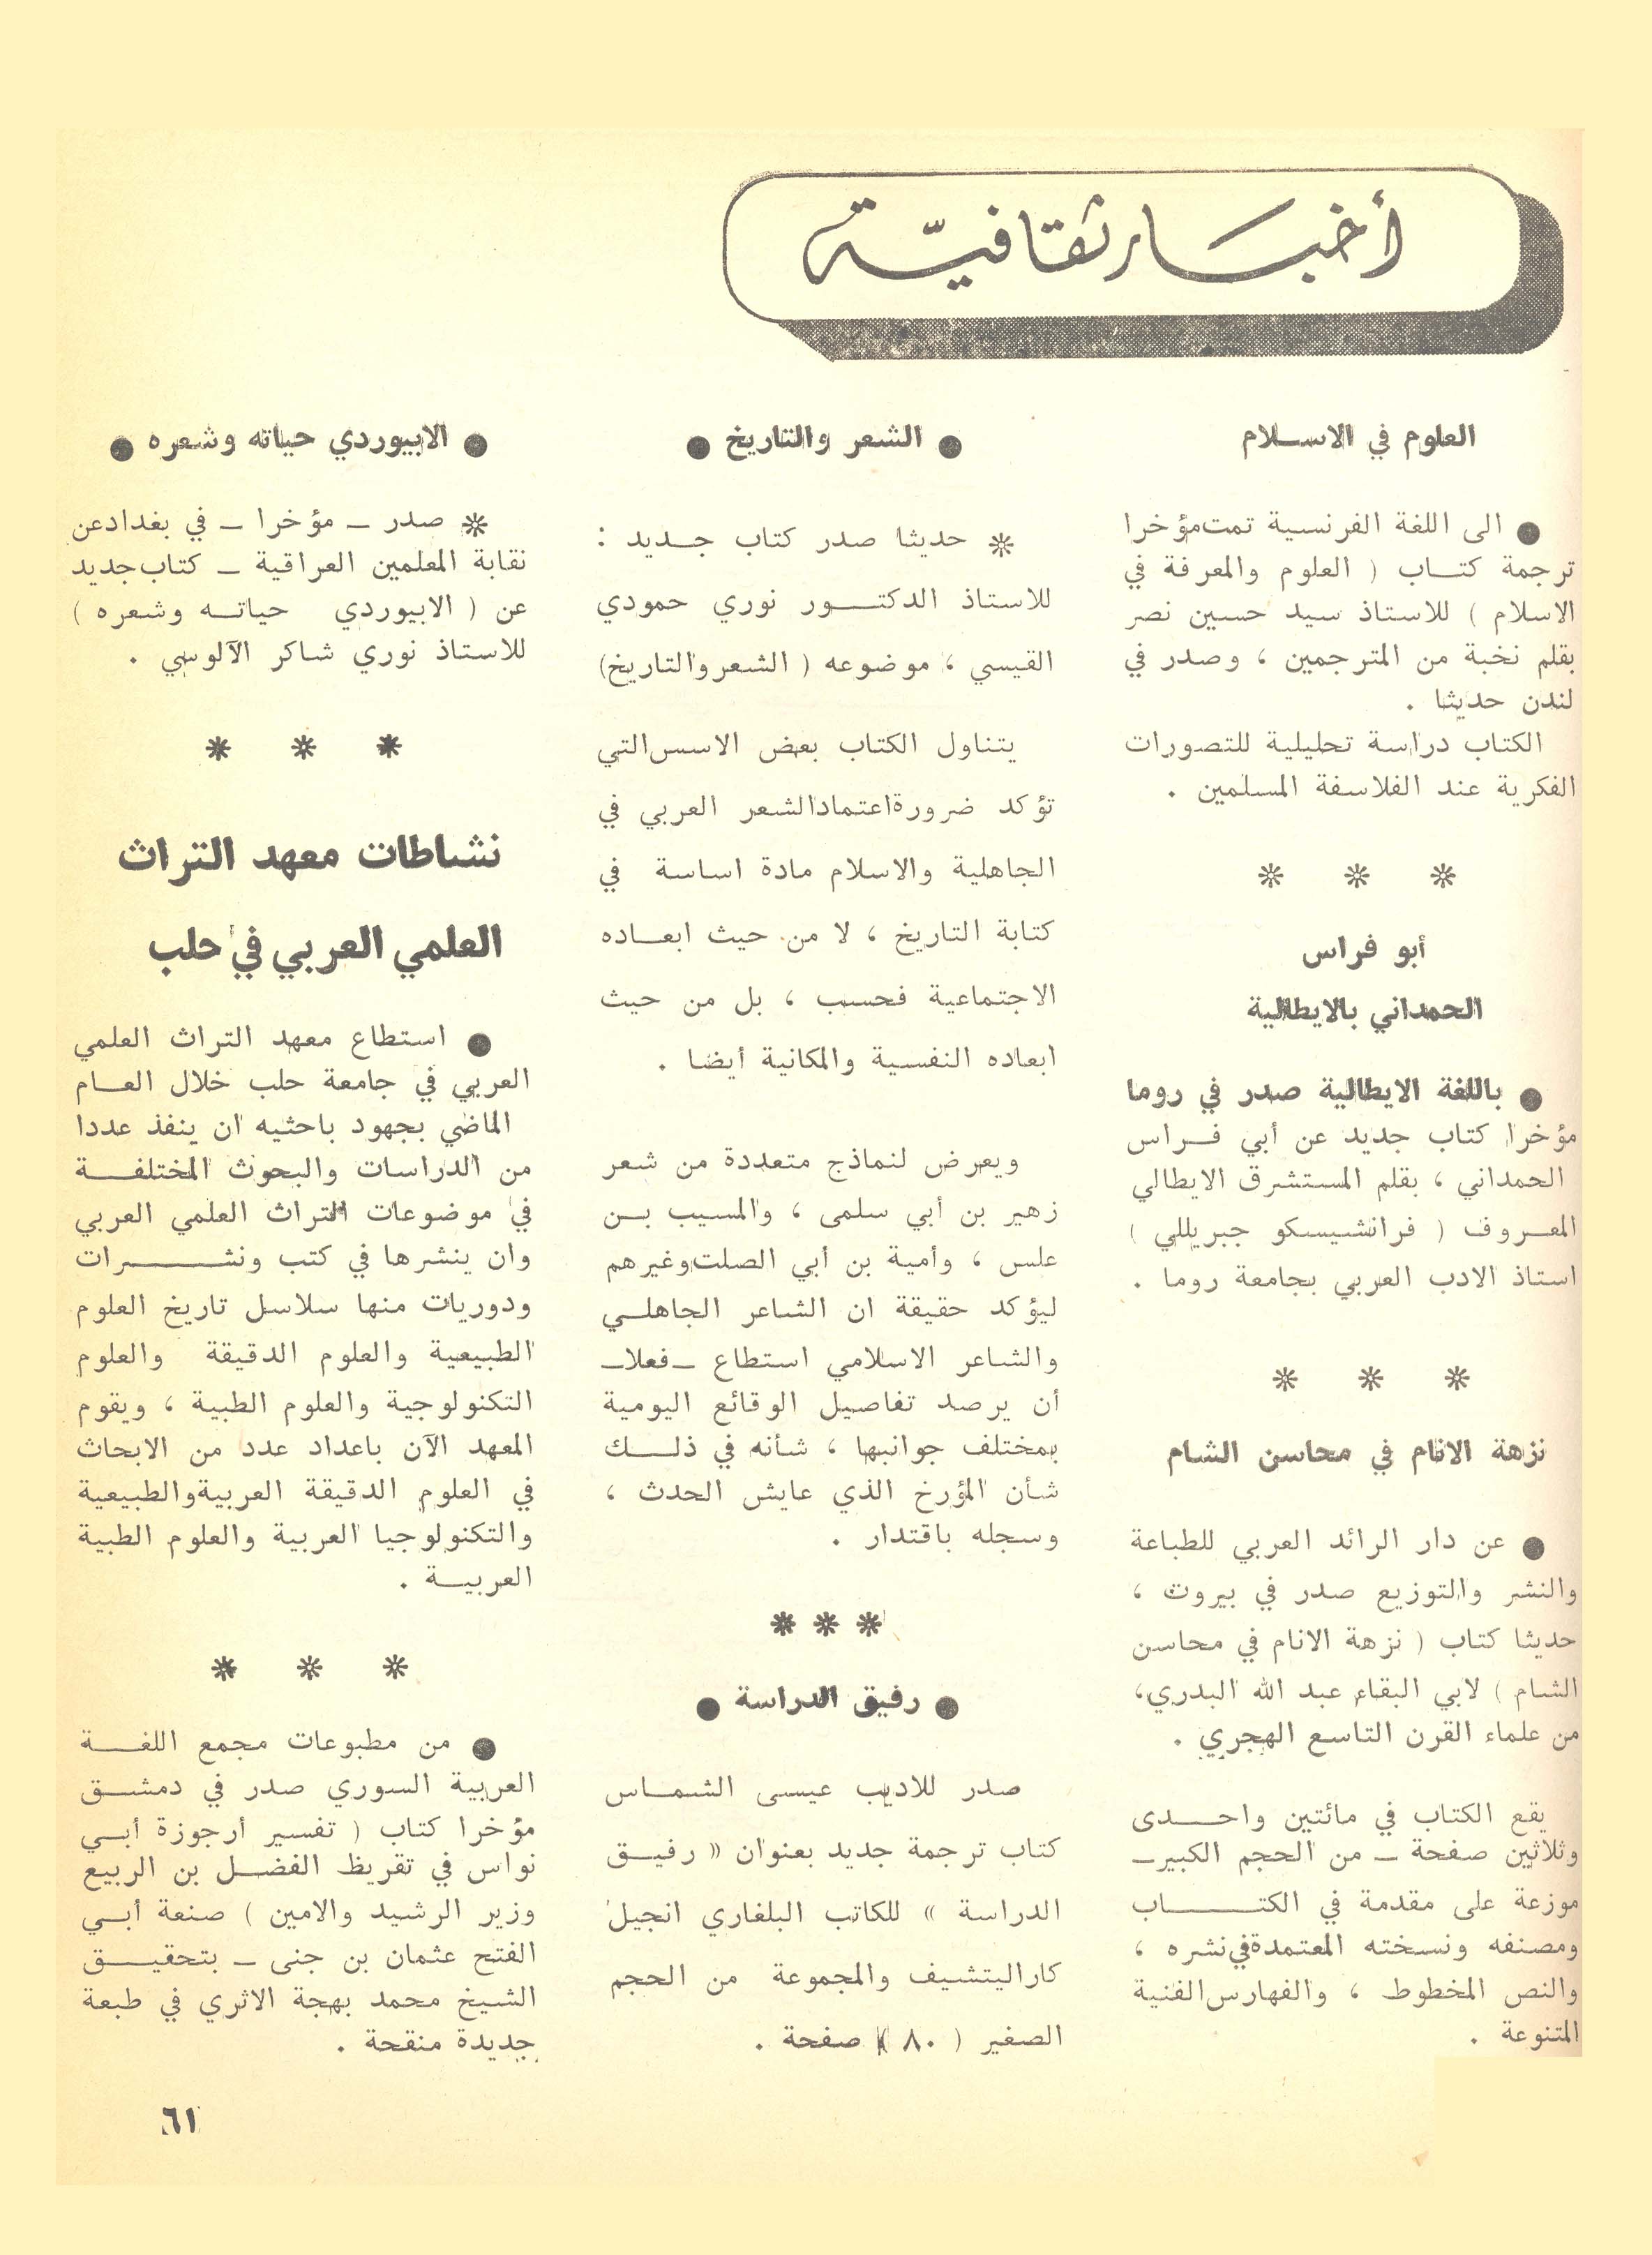 أخبار ثقافية
العلوم في الاسلام
● الى اللغة الفرنسية تمت مؤخرا
ترجمة كتاب ( العلوم والمعرفة في
الاسلام ) للاستاذ سيد حسين نصر
بقلم نخبة من المترجمين ، وصدر في
لندن حديثا .
الكتاب دراسة تحليلية للتصورات
الفكرية عند الفلاسفة المسلمين .
* * *
أبو فراس
الحمداني بالايطالية
● باللغة الايطالية صدر في روما
مؤخرا كتاب جديد عن أبي فراس
الحمداني ، بقلم المستشرق الايطالي
المعروف ( فرانشيسكو جبريللي )
استاذ الادب العربي بجامعة روما .
* * *
نزهة الانام في محاسن الشام
● عن دار الرائد العربي للطباعة
والنشر والتوزيع صدر في بيروت ،
حديثا كتاب ( نزهة الانام في محاسن
الشام ) لابي البقاء عبد الله البدري،
من علماء القرن التاسع الهجري .
يقع الكتاب في مائتين واحدى
وثلاثين صفحة ـ من الحجم الكبير ـ
موزعة على مقدمة في الكتاب
ومصنفه ونسخته المعتمدة في نشره ،
والنص المخطوط ، والفهارس الفنية
المتنوعة .
● الشعر والتاريخ ●
* حديثا صدر كتاب جديد :
للاستاذ الدكتور نوري حمودي
القيسي ، موضوعه ( الشعر والتاريخ)
يتناول الكتاب بعض الاسس التي
تؤكد ضرورة اعتماد الشعر العربي في
الجاهلية والاسلام مادة اساسة في
كتابة التاريخ ، لا من حيث ابعاده
الاجتماعية فحسب ، بل من حيث
ابعاده النفسية والمكانية أيضا .
ويعرض لنماذج متعددة من شعر
زهير بن أبي سلمى ، والمسيب بن
علس ، وأمية بن أبي الصلت وغيرهم
ليؤكد حقيقة ان الشاعر الجاهلي
والشاعر الاسلامي استطاع ـ فعلا ـ
أن يرصد تفاصيل الوقائع اليومية
بمختلف جوانبها ، شأنه في ذلك
شأن المؤرخ الذي عايش الحدث ،
وسجله باقتدار .
* * *
● رفيق الدراسة ●
صدر للاديب عيسى الشماس
كتاب ترجمة جديد بعنوان « رفيق
الدراسة » للكاتب البلغاري انجيل
كاراليتشيف والمجموعة من الحجم
الصغير ( ٨٠ ) صفحة .
● الابيوردي حياته وشعره ●
* صدر ـ مؤخرا ـ في بغداد عن
نقابة المعلمين العراقية ـ كتاب جديد
عن ( الابيوردي حياته وشعره )
للاستاذ نوري شاكر الآلوسي .
* * *
نشاطات معهد التراث
العلمي العربي في حلب
● استطاع معهد التراث العلمي
العربي في جامعة حلب خلال العام
الماضي بجهود باحثيه ان ينفذ عددا
من الدراسات والبحوث المختلفة
في موضوعات التراث العلمي العربي
وان ينشرها في كتب ونشرات
ودوريات منها سلاسل تاريخ العلوم
الطبيعية والعلوم الدقيقة والعلوم
التكنولوجية والعلوم الطبية ، ويقوم
المعهد الآن باعداد عدد من الابحاث
في العلوم الدقيقة العربية والطبيعية
والتكنولوجيا العربية والعلوم الطبية
العربية .
* * *
● من مطبوعات مجمع اللغة
العربية السوري صدر في دمشق
مؤخرا كتاب ( تفسير أرجوزة أبي
نواس في تقريظ الفضل بن الربيع
وزير الرشيد والامين ) صنعة أبي
الفتح عثمان بن جنى ـ بتحقيق
الشيخ محمد بهجة الاثري في طبعة
جديدة منقحة .
٦١